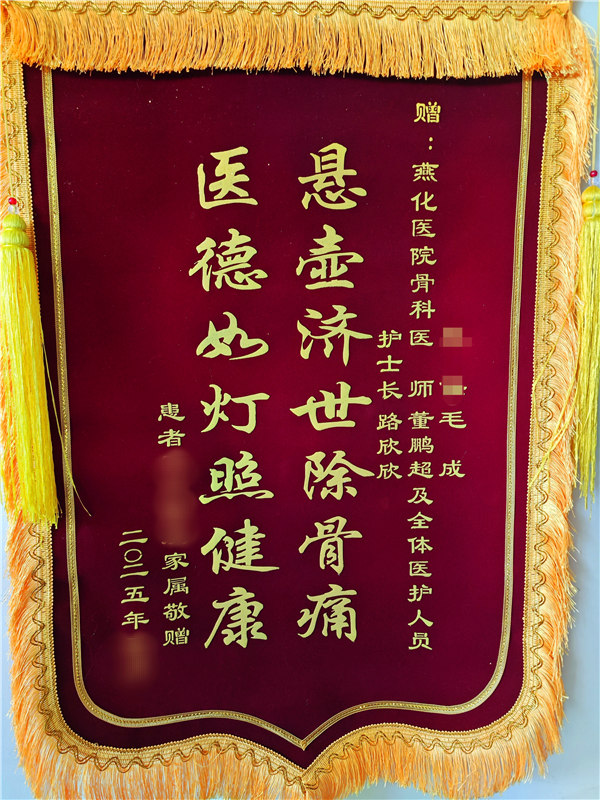 赠：燕化医院骨科医师董鹏超及全体医护人员
毛成
护士长路欣欣
悬壶济世除骨痛
医德如灯照健康
患者
家属敬赠
二〇二五年